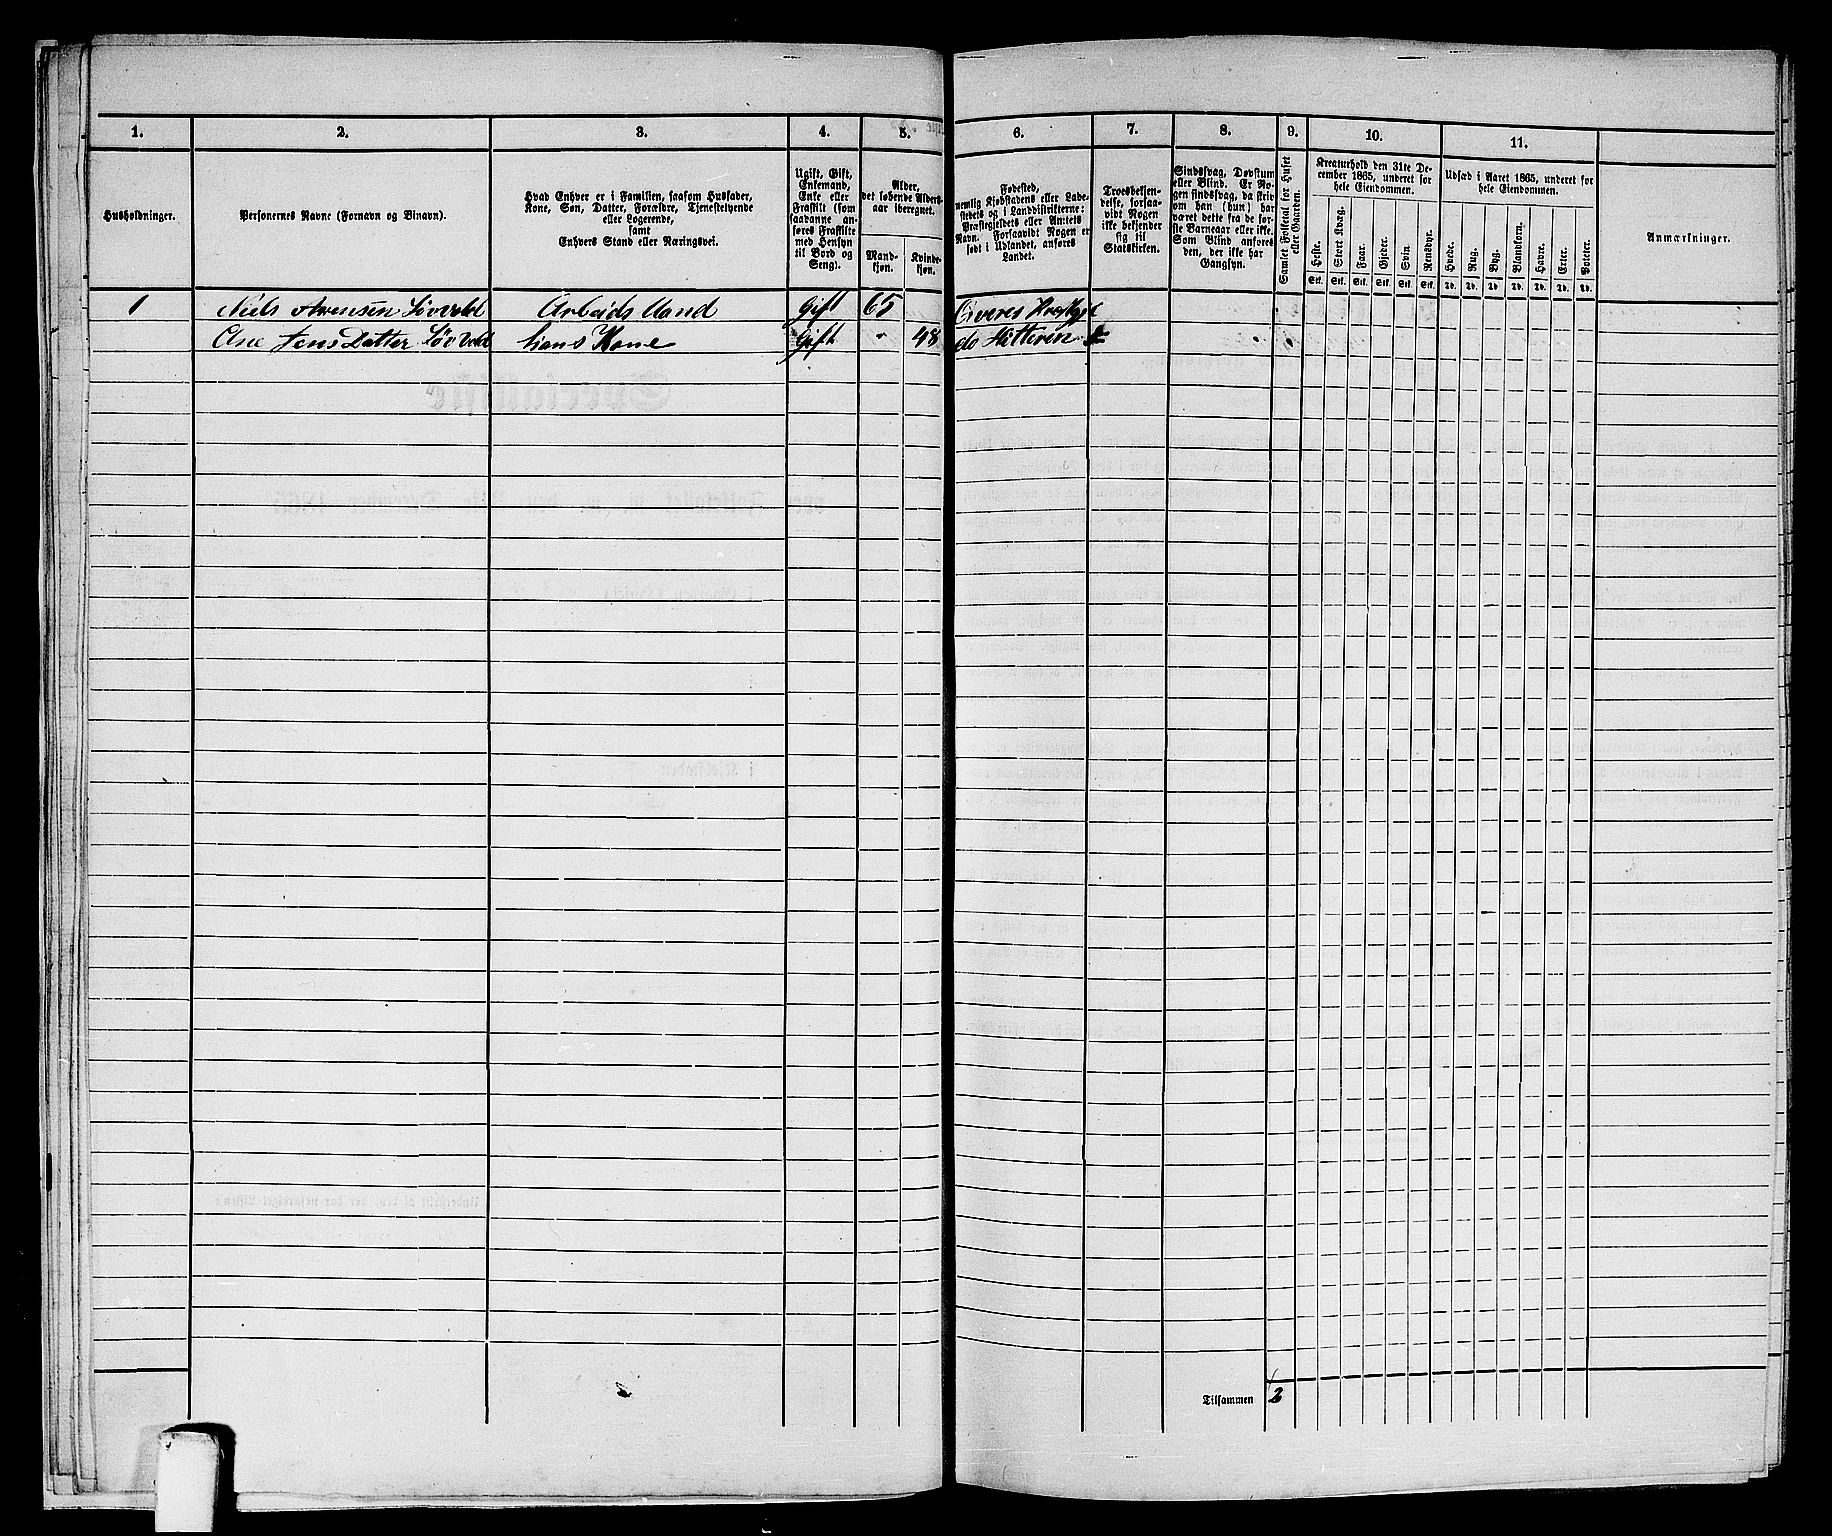 1. 2. 3. 4. 5. 6. 7. 8. 9. 10. 11.
Husholdninger.
Personernes Navne (Fornavn og Binavn).
Hvad Enhver er i Familien, saasom Husfader,
Kone, Søn, Datter, Forældre, Tjenestetyende
eller Logerende,
samt
Enhvers Stand eller Næringsvei.
Ugift, Gift,
Enkemand,
Enke eller
Fraskilt (som
saadanne an-
føres Fraskilte
med Hensyn
til Bord og
Seng).
Alder,
det løbende Alders-
aar iberegnet.
Mand-
kjøn.
Kvinde-
kjøn.
Fødested,
nemlig Kjøbstadens eller Lade-
stedets og i Landdistrikterne:
Præstegjeldets eller Annexets
Navn. Forsaavidt Nogen er
født i Udlandet, anføres
Landet.
Troesbekjen-
delse, forsaa-
vidt Nogen
ikke bekjender
sig til
Statskirken.
Sindssvag, Døvstum
eller Blind. Er No-
gen sindssvag, da skriv
om han (hun) har
været dette fra de før-
ste Barneaar eller ikke.
Som Blind anføres
den, der ikke har
Gangsyn.
Samlet Folketal for Huset
eller Gaarden.
Kreaturhold den 31te De-
cember 1865, underet for
hele Eiendommen.
Heste. Stort Kvæg. Faar. Gjeder. Svin. Rensdyr.
Stk. Stk. Stk. Stk. Stk. Stk.
Udsæd i Aaret 1865, underet for
hele Eiendommen.
Hvede. Rug. Byg. Blankorn. Havre. Erter. Poteter.
Td. Td. Td. Td. Td. Td. Td.
Anmærkninger.
1 Niels Arensen Løvvold Arbeids Mand Gift 65
Ane Jens Datter Løvvold hans Kone Gift " 48 do Hitteren
Tilsammen 2